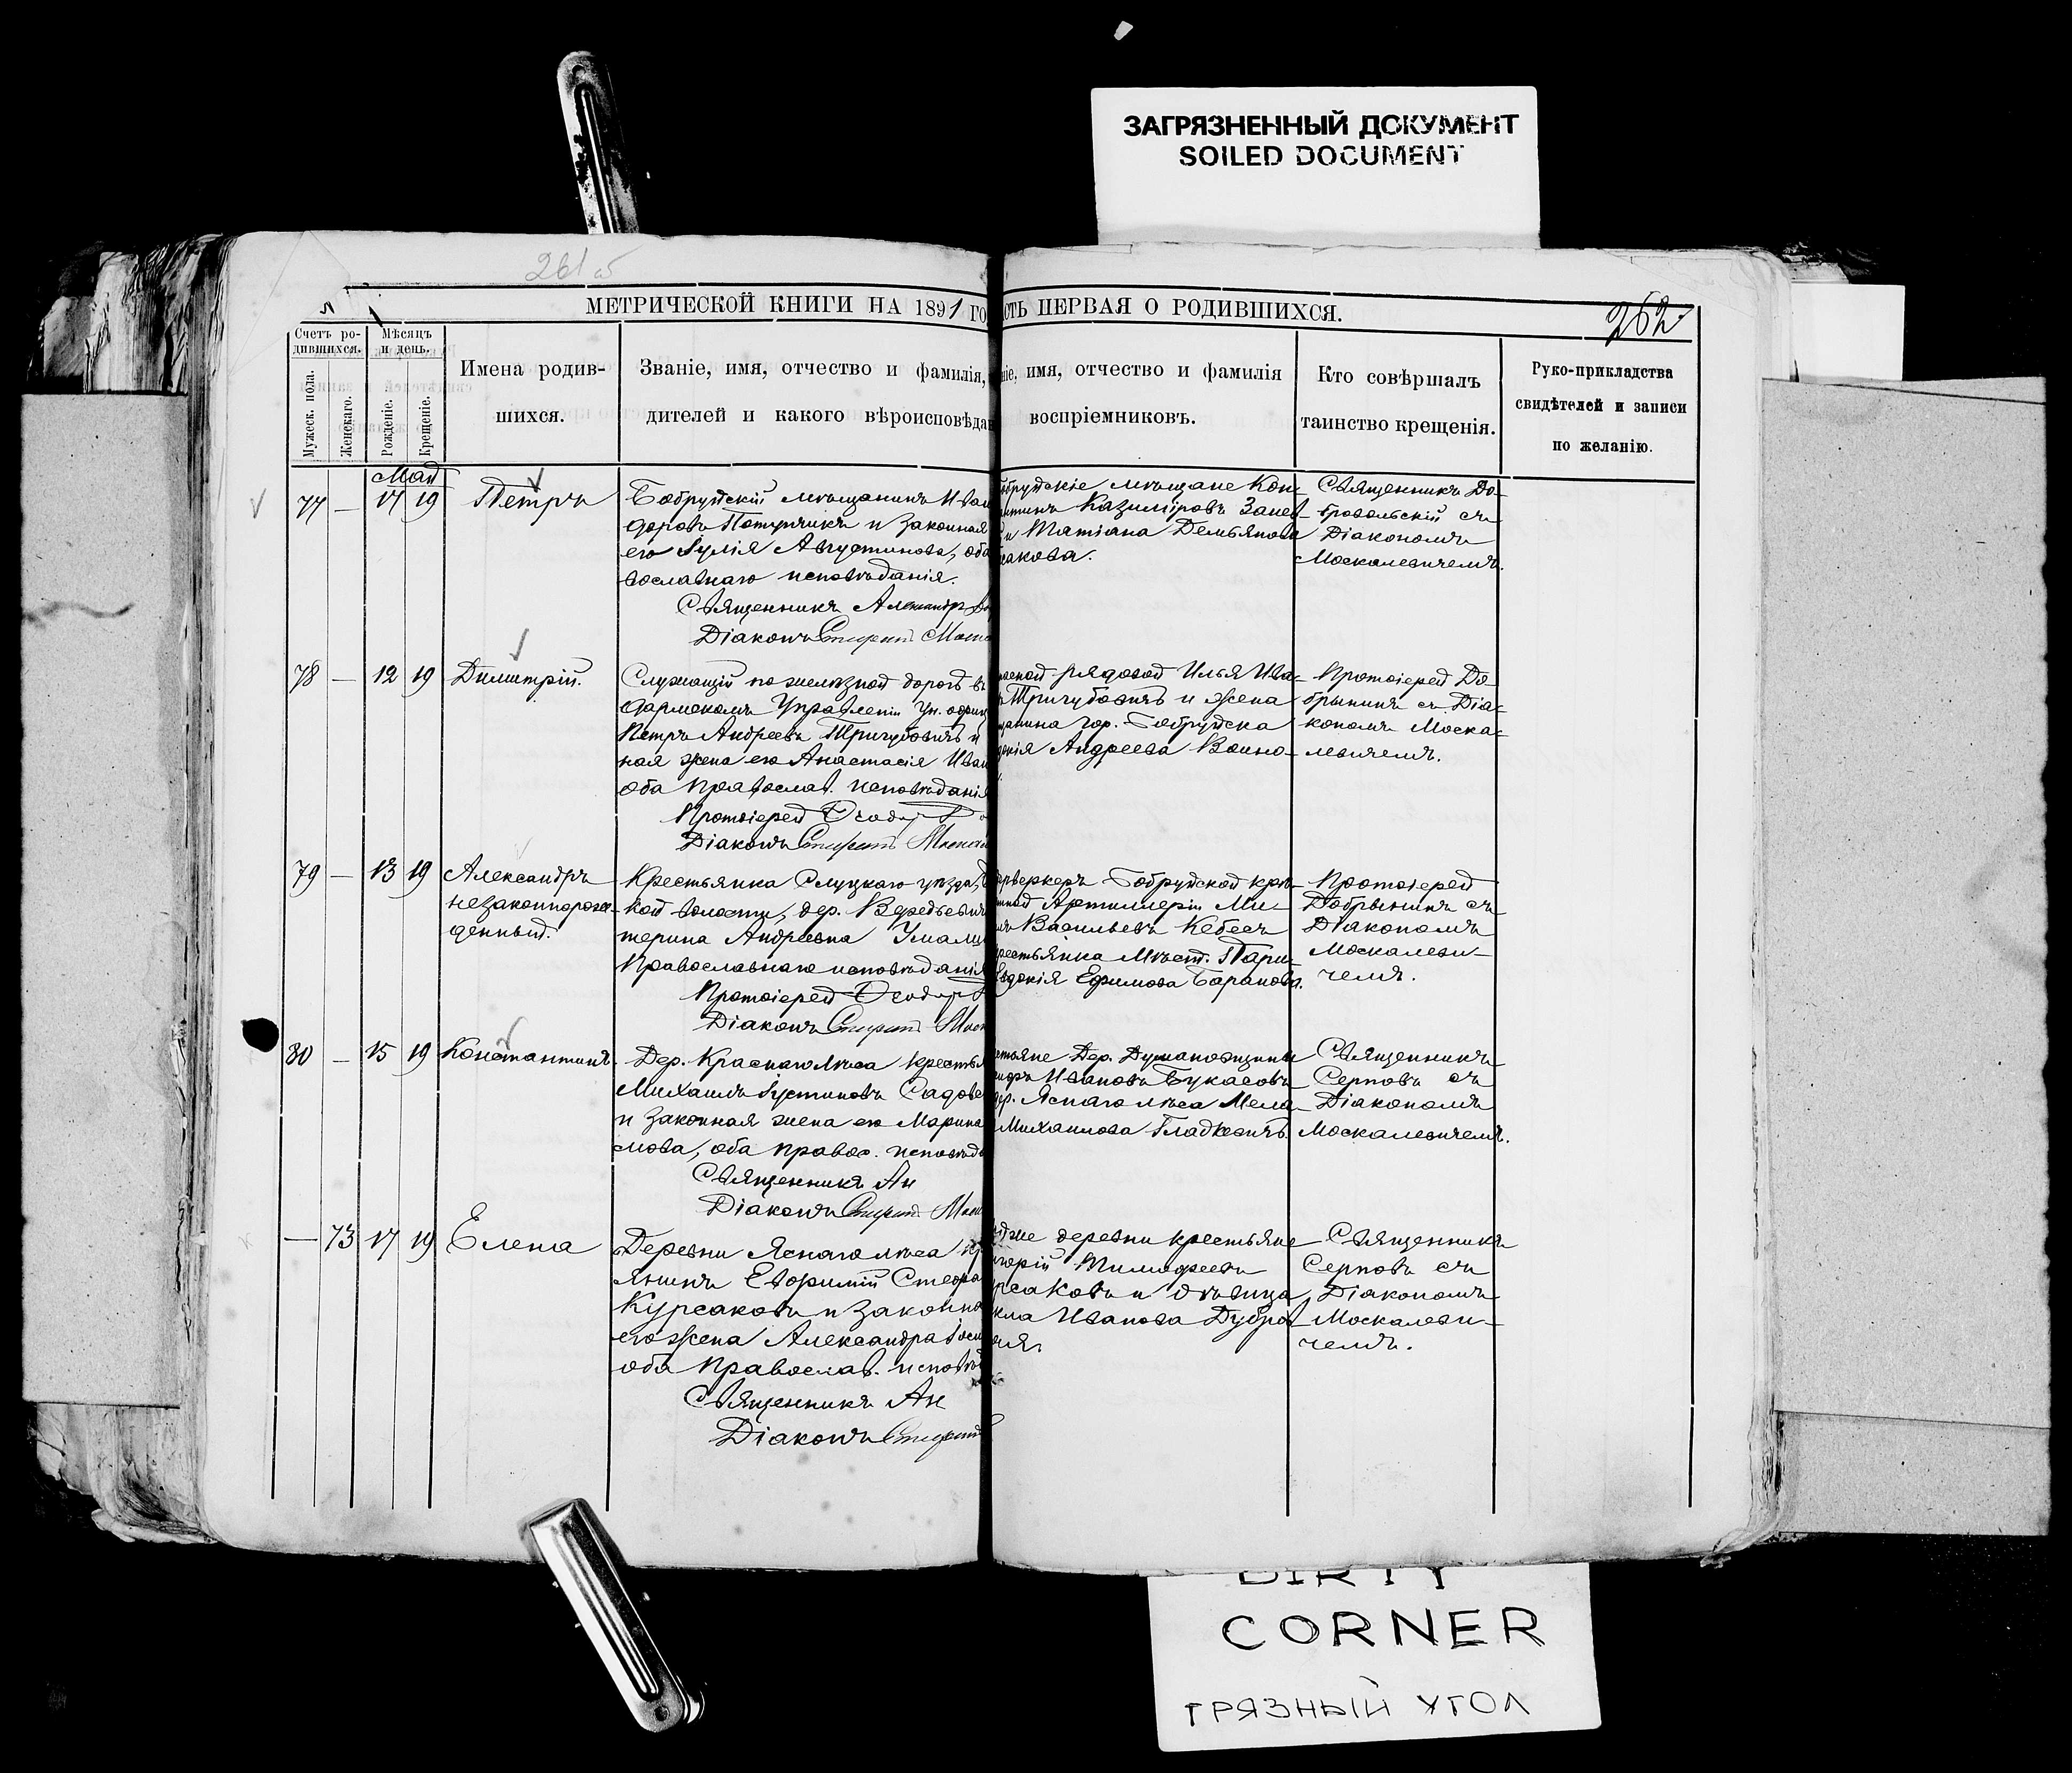 ЗАГРЯЗНЕННЫЙ ДОКУМЕНТ
SOILED DOCUMENT
261 об
МЕТРИЧЕСКОЙ КНИГИ НА 1891 ГО
СТЬ ПЕРВАЯ О РОДИВШИХСЯ.
262
Счетъ ро-
дившихся.
Мужеск. пола.
Женскаго.
Мѣсяцъ
и день.
Рожденіе.
Крещеніе.
Имена родив-
шихся.
Званіе, имя, отчество и фамилія,
дителей и какого вѣроисповѣдан
ніе, имя, отчество и фамилія
воспріемниковъ.
Кто совѣршалъ
таинство крещенія.
Руко-прикладства
свидѣтелей и записи
по желанію.
Май
77 — 17 19 Петръ
Бобруйскій мѣщанинъ Иван
доровъ и законная
его Іулія Августинова, оба
вославнаго исповѣданія.
Священникъ Александръ До
Діаконъ Моск
бруйскіе мѣщане Кон-
антинъ Казиміровъ Занев
и Матіана Демьянова
сакова.
Священникъ До-
бровольскій съ
Діакономъ
Москалевичемъ.
78 — 12 19 Димитрій.
Служащій по желѣзной дорогѣ въ
дармскомъ Управленіи Ун. офиц
Петръ Андреевъ Тричубовичъ и
ная жена его Анастасія Иван
оба Православ. исповѣданія
Протоіерей Ѳеодоръ
Діаконъ Москал
пасной рядовой Илья Ива-
Тричубовичъ и жена
щанина гор. Бобруйска
докія Андреева Воино-
Протоіерей До-
брынинъ съ Діа-
кономъ Моска-
левичемъ.
79 — 13 19 Александръ
незаконнорож-
денный.
Крестьянка Слуцкаго уѣзда,
кой волости, дер.
терина Андреевна
Православнаго исповѣданія
Протоіерей Ѳеодоръ
Діаконъ Моск
ерверкеръ Бобруйской крѣ-
стной Артиллеріи Ми-
лъ Васильевъ Кебесъ
рестьянка Мѣст. Пари-
Евдокія Ефимова Баранова.
Протоіерей
Добрынинъ съ
Діакономъ
Москалеви-
чемъ.
80 — 15 19 Константинъ
Дер. Краснаго лѣса крестья
Михаилъ Іустиновъ Садов
и законная жена его Марина
мова, оба правос. исповѣд
Священникъ Ан
Діаконъ Моск
стьяне Дер. Думановщины
Ивановъ Букасовъ
дер. Яснаго лѣса Мела-
Михаилова Гладкевичъ.
Священникъ
Серповъ съ
Діакономъ
Москалевичемъ.
— 73 17 19 Елена
Деревни Яснаго лѣса кр
янинъ Евфимій Стефа
Курсаковъ и законна
его жена Александра Іоси
оба Православ. исповѣд
Священникъ Ан
Діаконъ
же деревни крестьяне
игорій Тимофеевъ
рсаковъ и дѣвица
кла Иванова Дубров
Священникъ
Серповъ съ
Діакономъ
Москалеви-
чемъ.
DIRTY
CORNER
ГРЯЗНЫЙ УГОЛ